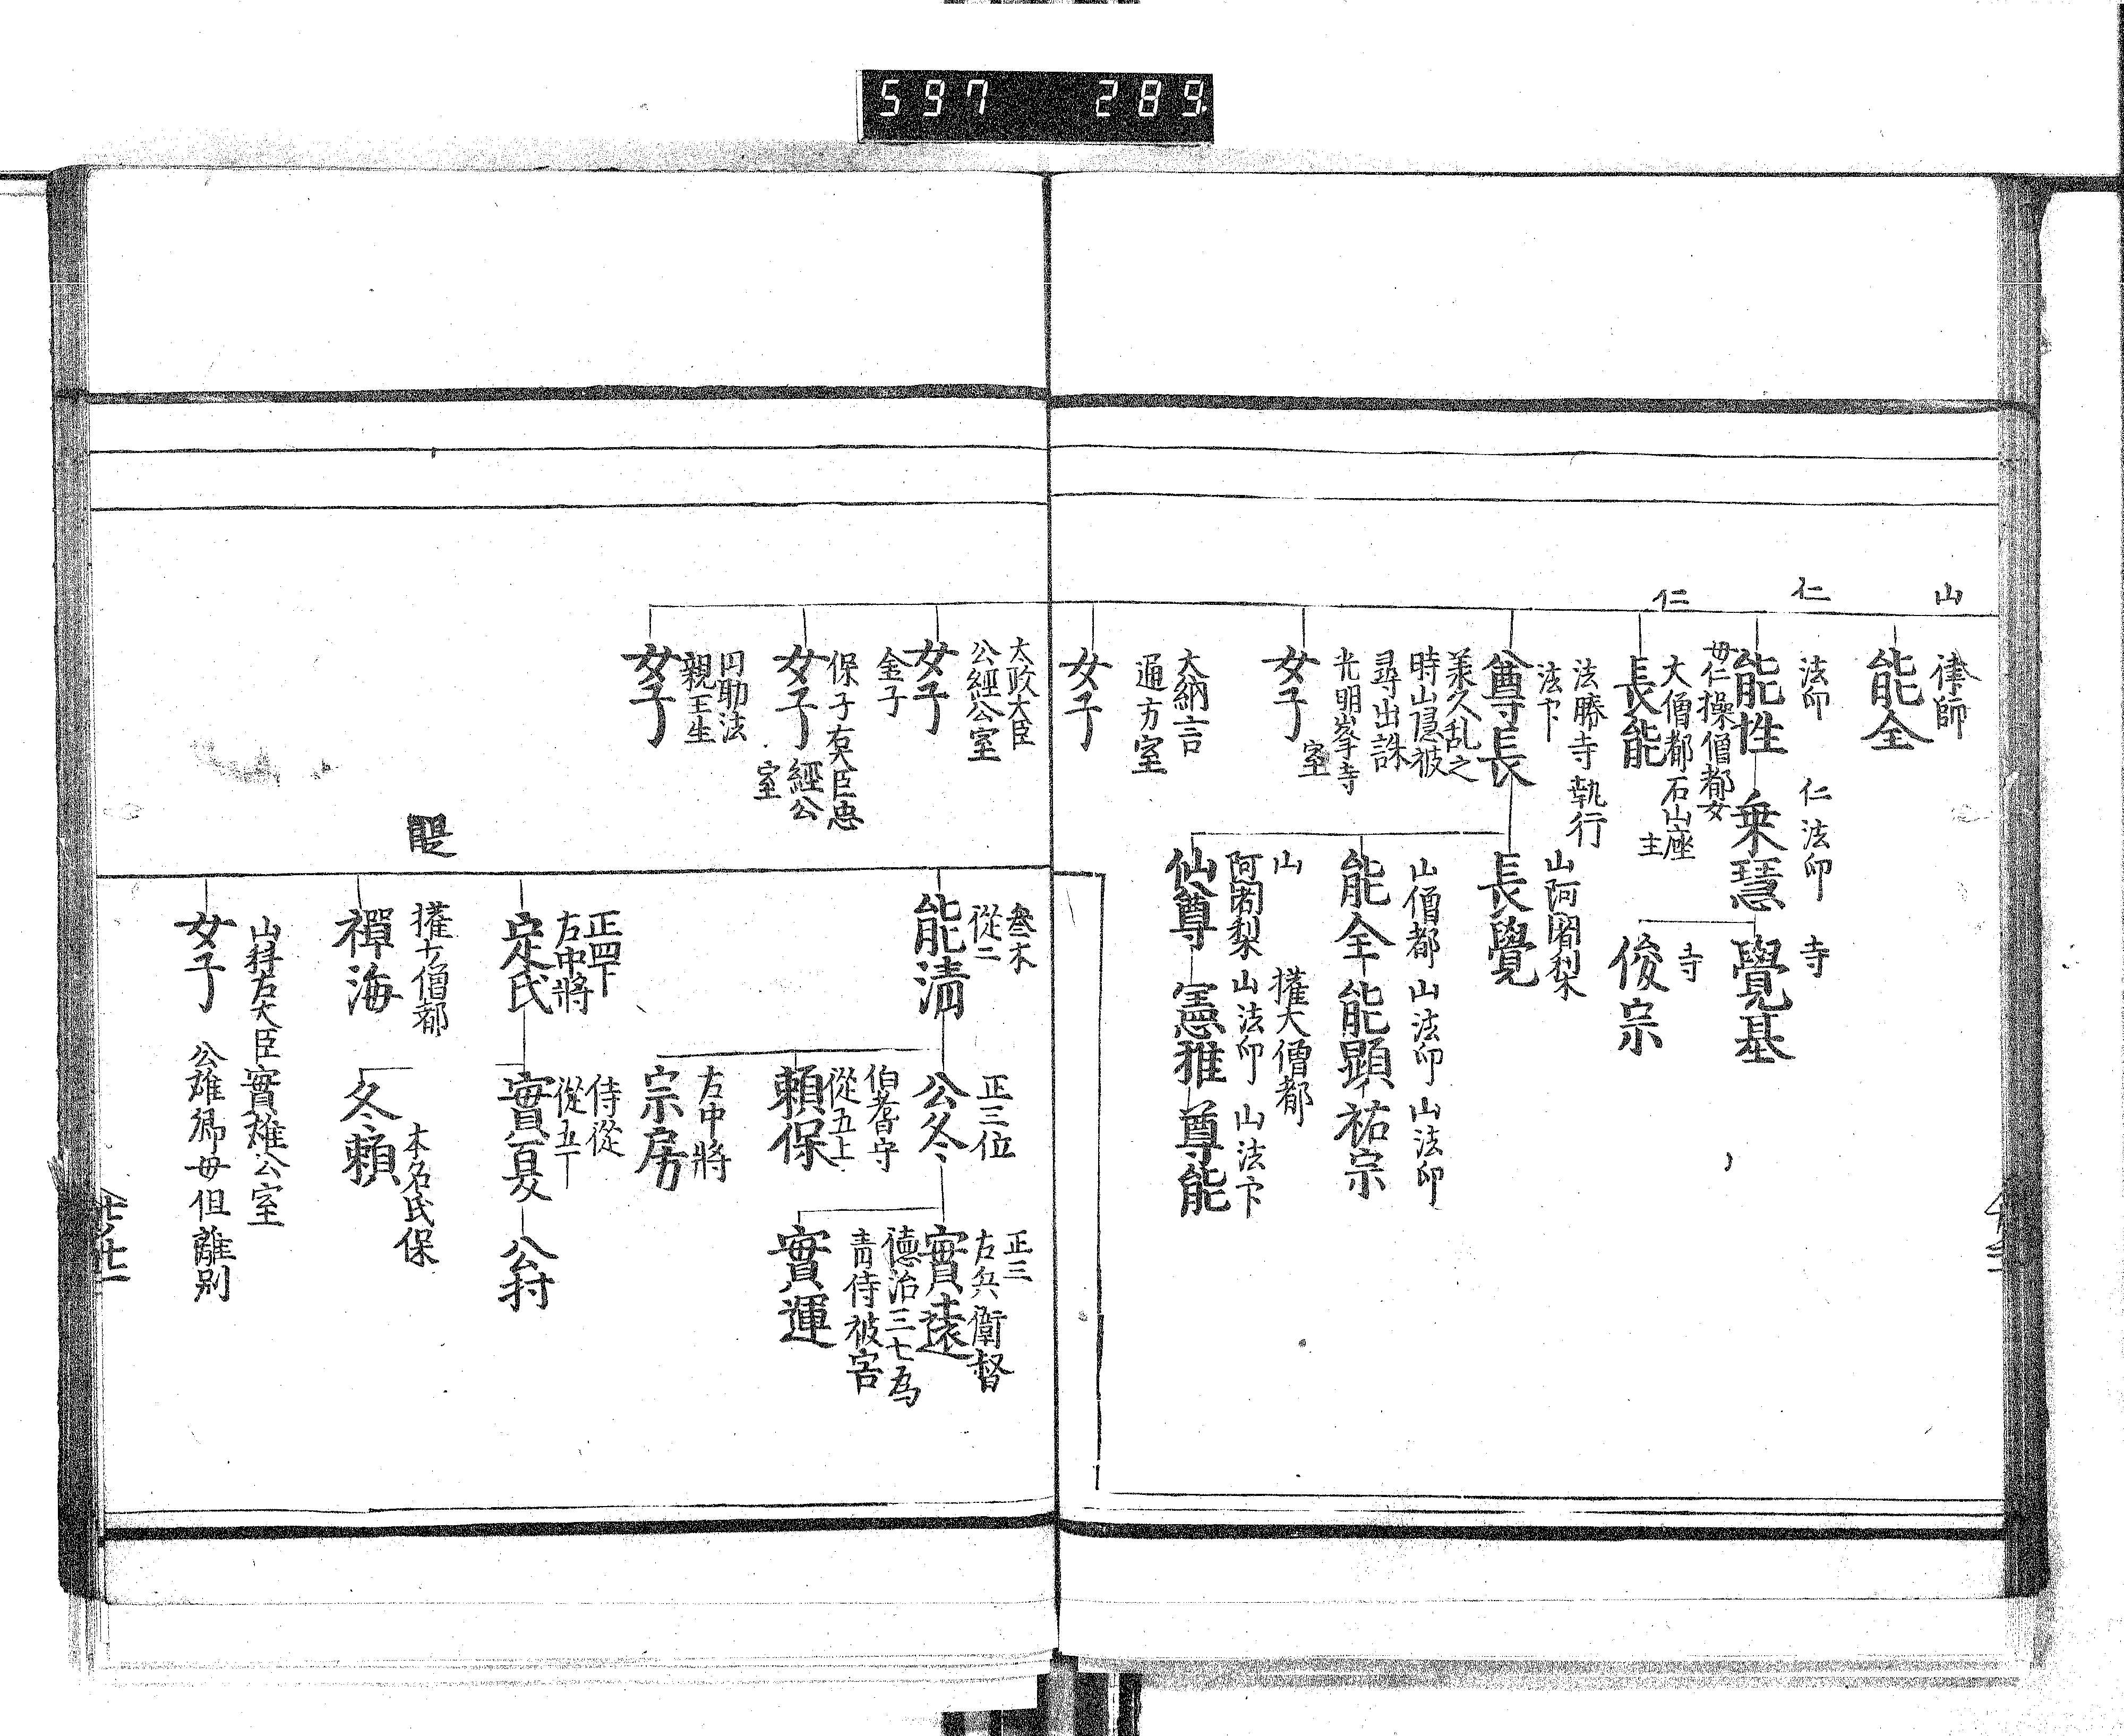 597 289
山
律師
能全
仁
法印
能性
仁法印
乗慧
寺
覺基
母仁操僧都女
仁
大僧都石山座
主
長能
寺
俊宗
法勝寺執行
法卞
尊長
承久乱之
時山隠被
尋出誅
山阿闍梨
長覺
山僧都
能全
山法印
能顕
山法印
祐宗
山
阿闍梨
仙尊
權大僧都
山法印
憲雅
山法卞
尊能
光明峯寺
室
女子
大納言
通方室
女子
太政大臣
公經公室
女子
金子
保子右大臣忠
經公
室
女子
円助法
親王生
女子
叅木
從二
能清
正三位
公冬
正三
右兵衛督
實遠
德治三七為
青侍被害
實運
伯耆守
從五上
頼保
右中將
宗房
正四下
右中將
定氏
侍從
從五下
實夏
公村
權大僧都
禪海
本名氏保
冬頼
山科右大臣實雄公室
女子
公雄卿母但離別